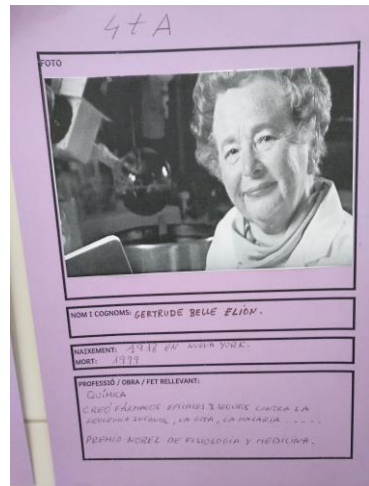 4t A
FOTO
NOM I COGNOMS: GERTRUDE BELLE ELION.
NAIXEMENT: 1918 EN NUEVA YORK.
MORT: 1999
PROFESSIÓ / OBRA / FET RELLEVANT:
QUÍMICA
CREÓ FÁRMACOS EFICACES Y SEGUROS CONTRA LA
LEUCEMIA INFANTIL, LA GOTA, LA MALARIA .....
PREMIO NOBEL DE FISIOLOGÍA Y MEDICINA.